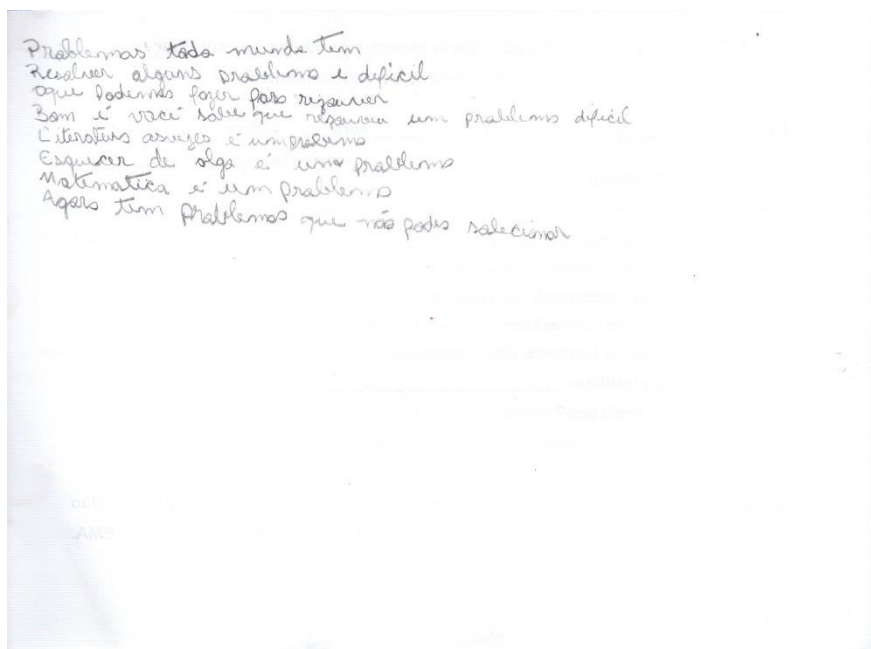 Problemas todo mundo tem
Resolver alguns problema e dificil
oque Podemos fazer para rezouver
Bom é você sabe que rezouveu um problema dificil
Literatura asvezes é umproblema
Esquecer de algo é uma problema
Matematica é um problema
Agora tem problemas que não podes solecionar